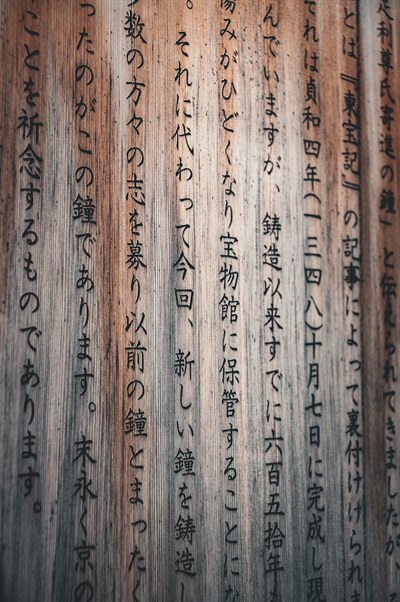 足利尊氏寄進の鐘」と伝えられてきましたが、
とは『東宝記』の記事によって裏付けけられま
それは貞和四年(一三四八)十月七日に完成し現
んでいますが、鋳造以来すでに六百五拾年も
傷みがひどくなり宝物館に保管することにな
。それに代わって今回、新しい鐘を鋳造し
多数の方々の志を募り以前の鐘とまったく
ったのがこの鐘であります。末永く京の
ことを祈念するものであります。